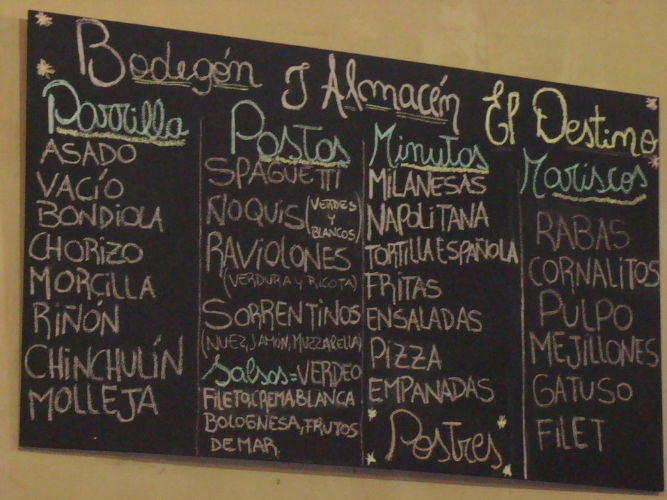 Bodegón Y Almacén El Destino
Parrilla
ASADO
VACÍO
BONDIOLA
CHORIZO
MORCILLA
RIÑÓN
CHINCHULÍN
MOLLEJA
Pastas
SPAGUETTI
ÑOQUIS (VERDES
Y
BLANCOS)
RAVIOLONES
(VERDURA Y RICOTA)
SORRENTINOS
(NUEZ, JAMÓN, MUZZARELLA)
Salsas = VERDEO
FILETO, CREMA BLANCA
BOLOGNESA, FRUTOS
DE MAR
Minutas
MILANESAS
NAPOLITANA
TORTILLA ESPAÑOLA
FRITAS
ENSALADAS
PIZZA
EMPANADAS
Postres
Mariscos
RABAS
CORNALITOS
PULPO
MEJILLONES
GATUSO
FILET